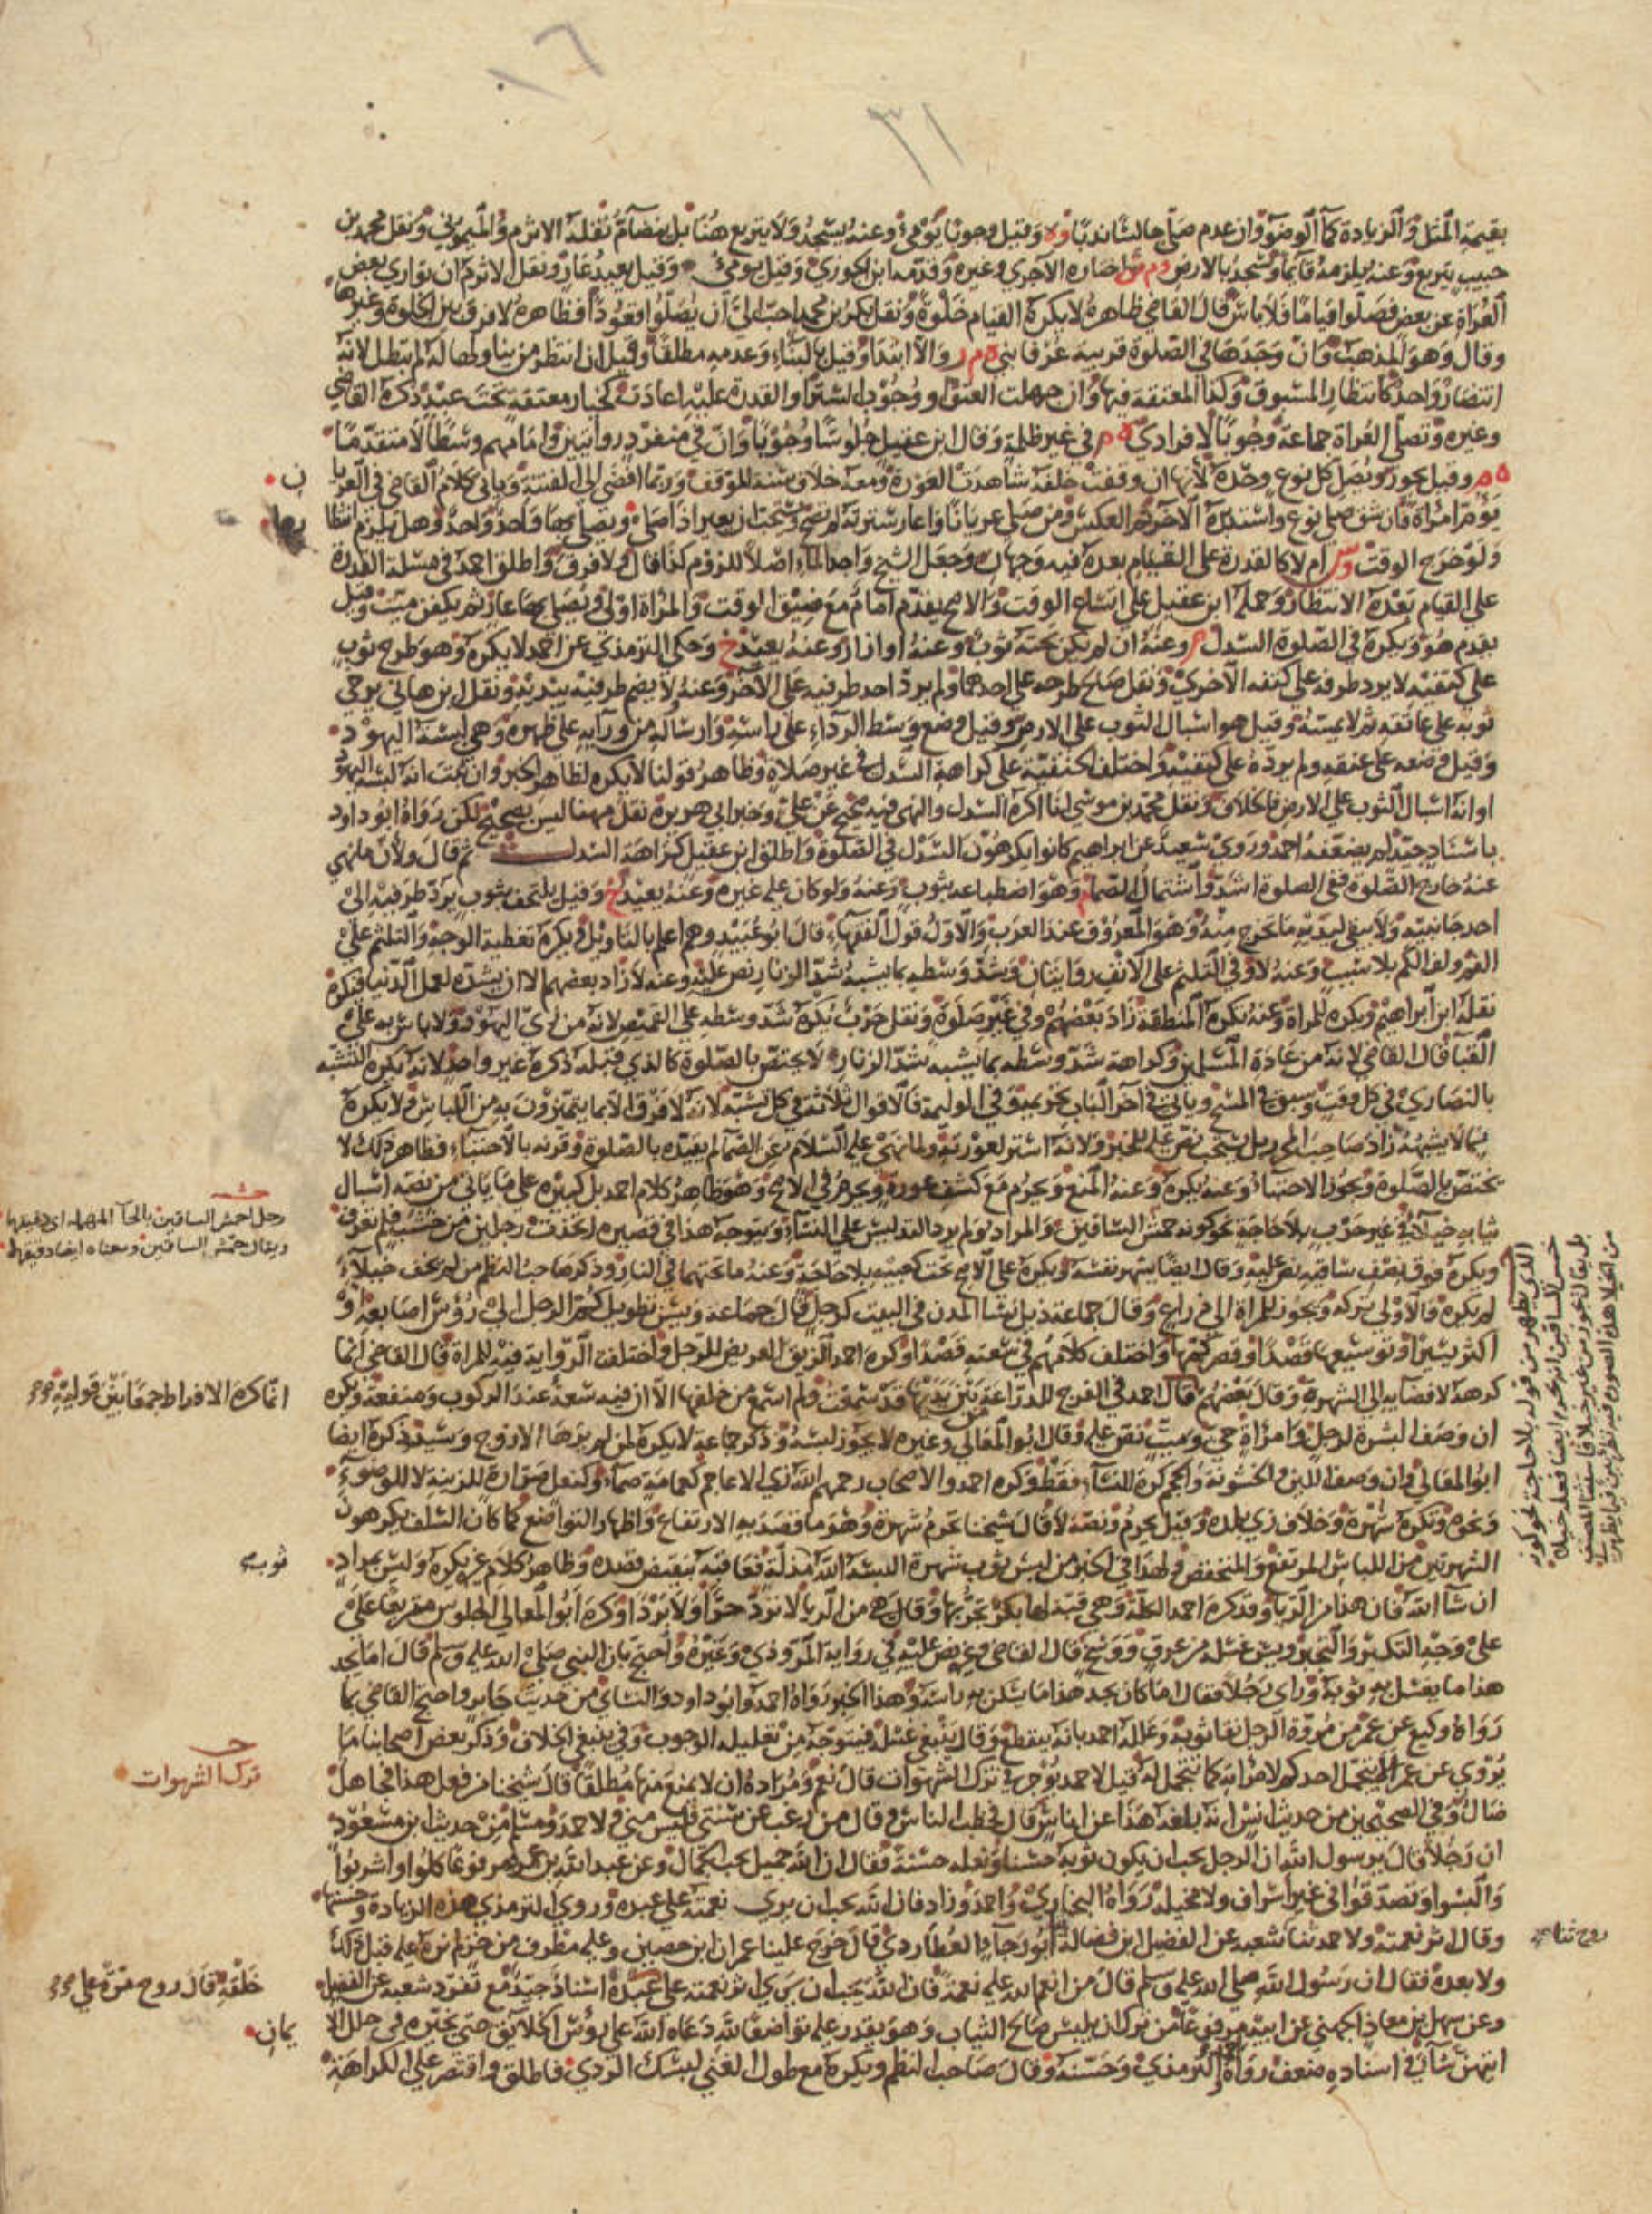 ١٦
٣١
بقيمة المثل والزيادة كما الوضوء وان عدم صلى جالسا ندبا وه وقيل وجوبا يومئ وعنه يسجد ولا يتربع هنا بل ينضام نقله الاثرم والميموني ونقل محمد بن
حبيب يتربع وعنه يلزمه قائما ويسجد بالارض وم ش اختاره الآجري وغيره وقدمه ابن الجوزي وقيل يومئ وقيل يعيد عار ونقل الاثرم ان توارى بعض
العراة عن بعض فصلوا قياما فلا باس قال القاضي ظاهره لا يكره القيام خلوة ونقل بكر بن محمد احب الي ان يصلوا قعودا فظاهره لا فرق بين الخلوة وغيرها
وقال وهو المذهب وان وجدها في الصلوة قريبة عرفا بنى ه م ر والا ابتدا وقيل بالبناء وعدمه مطلقا وقيل ان انتظر من يناوله لم تبطل لانه
انتظار واحد كانتظار المسبوق وكذا المعتقة فيها وان جهلت العتق او وجوب الستر او القدرة عليه اعادت كخيار معتقة تحت عبد ذكره القاضي
وغيره وتصلي العراة جماعة وجوبا لا فرادى ه م في غير ظلمة وقال ابن عقيل جلوسا وجوبا وان في منفرد روايتين وامامهم وسطا لا متقدما
ه م وقيل يجوز ويصلي كل نوع وحده لانها ان وقفت خلفه شاهدت العورة ومعه خلاف سنة الموقف وربما افضى الى الفتنة وياتي كلام القاضي في العريان
يؤم امراة فان شق صلى نوع واستدبره الآخر ثم العكس ومن صلى عريانا واعار سترته لم تصح ويستحب ان يعير اذا صلى ويصلي بها واحد واحد وهل يلزم انتظارها
ولو خرج الوقت وش ام لا كالقدرة على القيام بعده فيه وجهان وجعل الشيخ واجد الماء اصلا للزوم كذا قال ولا فرق واطلق احمد في مسئلة القدرة
على القيام بعده الانتظار وحمله ابن عقيل على اتساع الوقت والاصح يقدم امام مع ضيق الوقت والمراة اولى ويصلي بها عار ثم يكفن ميت وقيل
يقدم هو ويكره في الصلوة السدل م وعنه ان لم يكن تحته ثوب وعنه او ازار وعنه يعيد خ وحكى الترمذي عن احمد لا يكره وهو طرح ثوب
على كتفيه لا يرد طرفه على كتفه الاخرى ونقل صالح طرحه على احدهما ولم يرد احد طرفيه على الآخر وعنه ولا يضم طرفيه بيديه ونقل ابن هاني يرخي
ثوبه على عاتقه ثم لا يمسه وقيل هو اسبال الثوب على الارض وقيل وضع وسط الرداء على راسه وارساله من ورائه على ظهره وهي لبسة اليهود
وقيل وضعه على عنقه ولم يرده على كتفيه واختلف الحنفية على كراهة السدل في غير صلاة وظاهر قولنا لا يكره لظاهر الخبر وان ثبت انه لبسة اليهود
او انه اسبال الثوب على الارض فالخلاف ونقل محمد بن موسى لنا اكره السدل والنهي فيه صحيح عن علي وخبر ابي هريرة نقل مهنا ليس بصحيح لكن رواه ابو داود
باسناد جيد لم يضعفه احمد وروى سعيد عن ابراهيم كانوا يكرهون السدل في الصلوة واطلق ابن عقيل كراهة السدل ثم قال ولان ما نهي
عنه خارج الصلوة ففي الصلوة اشد واشتمال الصماء م وهو اضطباعه بثوب وعنه ولو كان على غيره وعنه يعيد خ وقيل يلتحف بثوب يرد طرفيه الى
احد جانبيه ولا يبقى ليديه ما تخرج منه وهو المعروف عند العرب والاول قول الفقهاء قال ابو عبيد وهم اعلم بالتاويل ويكره تغطية الوجه والتلثم على
الفم ولف الكم بلا سبب وعنه لا وفي التلثم على الانف روايتان وشد وسطه بما يشبه شد الزنار نص عليه وعنه لا زاد بعضهم الا ان يشده لعمل الدنيا فيكره
نقله ابن ابراهيم ويكره للمراة وعنه تكره المنطقة زاد بعضهم وفي غير صلوة ونقل حرب نكره شد وسطه على القميص لانه من زي اليهود ولا باس به على
القبا قال القاضي لانه من عادة المسلمين وكراهة شد وسطه بما يشبه شد الزنار لا تختص بالصلوة كالذي قبله ذكره غير واحد لانه يكره التشبه
بالنصارى في كل وقت وسبق في المسح وياتي في آخر الباب تحريمه وفي الوليمة فالاقوال ثلاثة في كل تشبه لانه لا فرق الا بما يتميزون به من اللباس ولا يكره
بما لا يشبهه زاد صاحب المحرر بل يستحب نص عليه للخبر ولانه استر لعورته ولما نهى عليه السلام عن الصماء لم يقيده بالصلوة وقرنه بالاحتباء فظاهر ذلك لا
يختص بالصلوة ويجوز الاحتباء وعنه يكره وعنه المنع ويحرم مع كشف عورة ويحرم في الاصح وهو ظاهر كلام احمد بل كبيرة على ما ياتي من نصه اسبال
ثيابه خيلاء في غير حرب بلا حاجة نحو كونه حمش الساقين والمراد ولم يرد التدليس على النساء ويتوجه هذا في قصيرة اتخذت رجلين من خشب فلم تعرف
ويكره فوق نصف ساقيه نص عليه وقال ايضا يشهر نفسه ويكره على الاصح تحت كعبيه بلا حاجة وعنه ما تحتهما في النار وذكر صاحب النظم من لم يخف خيلاء
لم يكره والاولى تركه ويجوز للمراة الى ذراع وقال جماعة ذيل نساء المدن في البيت كرجل قال جماعة ويسن تطويل كم الرجل الى رؤس اصابعه او
اكثر بيسير وتوسيعها قصدا وقصر كمها واختلف كلامهم في سعته قصدا وكره احمد الزيق العريض للرجل واختلفت الرواية فيه للمراة قال القاضي انما
كرهه لافضائه الى الشهرة وقال بعضهم قال احمد في الفرج للدراعة من بين يديها قد سمعت ولم اسمع من خلفها الا ان فيه سعة عند الركوب ومنفعة ويكره
ان وصف البشرة لرجل وامراة حي وميت نص عليه وقال ابو المعالي وغيره لا يجوز لبسه وذكر جماعة لا يكره لمن لم يرها الا زوج وسيد وذكره ايضا
ابو المعالي وان وصف اللين والخشونة والحجم كره للنساء فقط وكره احمد والاصحاب رحمهم الله زي الاعاجم كعمامة صماء وكنعل صرارة للزينة لا للوضوء
ونحوه وتكره شهرة وخلاف زي بلده وقيل يحرم ونصه لا قال شيخنا يحرم شهرة وهو ما قصد به الارتفاع واظهار التواضع كما كان السلف يكرهون
الشهرتين من اللباس المرتفع والمنخفض ولهذا في الخبر من لبس ثوب شهرة البسه الله مذلة فعاقبه بنقيض قصده وظاهر كلام غيره يكره وليس بمراد
ان شاء الله فان هذا من الريا وقد كره احمد الكلة وهي قبة لها بكر تجر بها وقال هي من الريا لا ترد حرا ولا بردا وكره ابو المعالي الجلوس متربعا على
على وجه التكبر والتجبر ويسن غسله من عرق ووسخ قال القاضي وغيره نص عليه في رواية المروذي وغيره واحتج بان النبي صلى الله عليه وسلم قال اما يجد
هذا ما يغسل به ثوبه وراى رجلا فقال اما كان يجد هذا ما يسكن به راسه وهذا الخبر رواه احمد وابو داود والنساي من حديث جابر واحتج القاضي بما
رواه وكيع عن عمر من مروة الرجل نقا ثوبه وعلله احمد بانه يتقطع وقال ينبغي غسله فيتوجه من تعليله الوجوب وفي ينبغي الخلاف وذكر بعض اصحابنا ما
يروي عن عمر ليتجمل احدكم لامراته كما تتجمل له قيل لاحمد يؤجر في ترك الشهوات قال نعم ومراده ان لا يمنع منها مطلقا قال شيخنا من فعل هذا فجاهل
ضال وفي الصحيحين من حديث انس انه بلغه هذا عن اناس قال فخطب الناس وقال من رغب عن سنتي فليس مني ولاحمد ومسلم من حديث ابن مسعود
ان رجلا قال يرسول الله ان الرجل يحب ان يكون ثوبه حسنا ونعله حسنة فقال ان الله جميل يحب الجمال وعن عبد الله بن عمرو مرفوعا كلوا واشربوا
والبسوا وتصدقوا في غير اسراف ولا مخيلة رواه البخاري واحمد وزاد فان الله يحب ان يرى نعمته على عبده وروى الترمذي هذه الزيادة وحسنها
وقال اثر نعمته ولاحمد ثنا شعبه عن الفضيل ابن فضالة ابو رجاء العطاردي قال خرج علينا عمران ابن حصين وعليه مطرف من خز لم نره عليه قبل ذلك
ولا بعده فقال ان رسول الله صلى الله عليه وسلم قال من انعم الله عليه نعمة فان الله يحب ان يرى اثر نعمته على عبده اسناد جيد مع تفرد شعبه عن الفضيل
وعن سهل بن معاذ الجهني عن ابيه مرفوعا من ترك ان يلبس صالح الثياب وهو يقدر عليه تواضعا لله دعاه الله على رؤس الخلائق حتى يخيره في حلل الا
ايتهن شاء في اسناده ضعف رواه الترمذي وحسنه وقال صاحب النظم ويكره مع طول الغنى لبسك الردي فاطلق واقتصر على الكراهة
رجل احمش الساقين بالحاء المهمله اى دقيقها
ويقال حمش الساقين ومعناه ايضا دقيقهما
انما كره الافراط جمعا بين قوليه
ثوبه
ترك الشهوات
روح ثنا
خلقه قال روح مرة على
يمان
الذي يظهر من قوله بلا حاجة نحو كونه